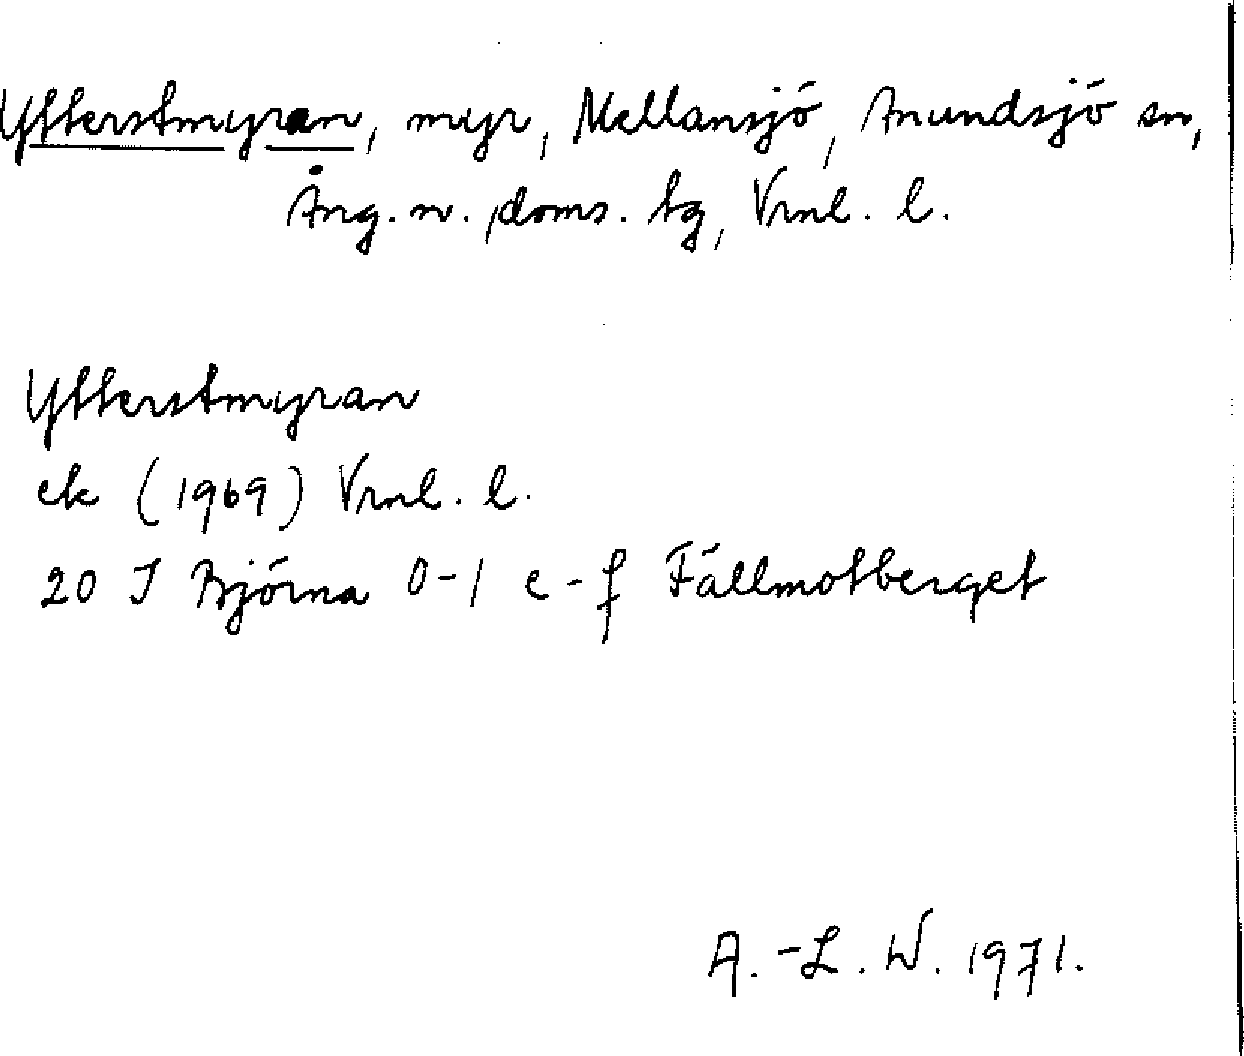 Ytterstmyran, myr, Mellansjö, Anundsjö sn,
Ång. n. doms. tg, Vrnl. l.
Ytterstmyran
ek (1969) Vrnl. l.
20 J Björna 0-1 e-f Fällmotberget
A.-L. W. 1971.